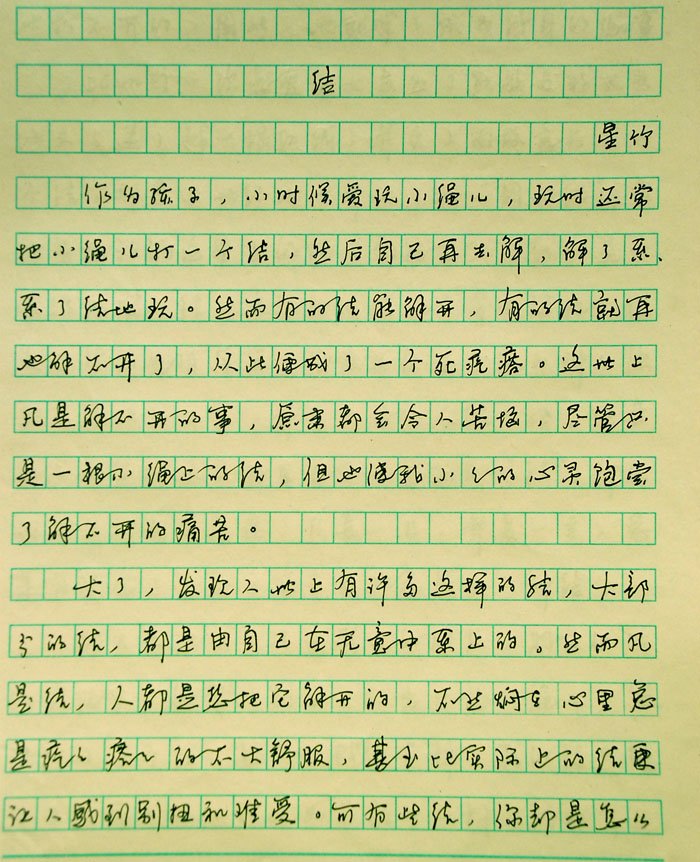 结
星竹
作为孩子，小时候爱玩小绳儿，玩时还常
把小绳儿打一个结，然后自己再去解，解了系、
系了结地玩。然而有的结能解开，有的结就再
也解不开了，从此便成了一个死疙瘩。这世上
凡是解不开的事，原来都会令人苦恼，尽管只
是一根小绳上的结，但也使我小小的心灵饱尝
了解不开的痛苦。
大了，发现人世上有许多这样的结，大部
分的结，都是由自己在无意中系上的。然而凡
是结，人都是想把它解开的，不然焖在心里总
是疙疙瘩瘩的不大舒服，甚至比实际上的结更
让人感到别扭和难受。可有些结，你却是怎么